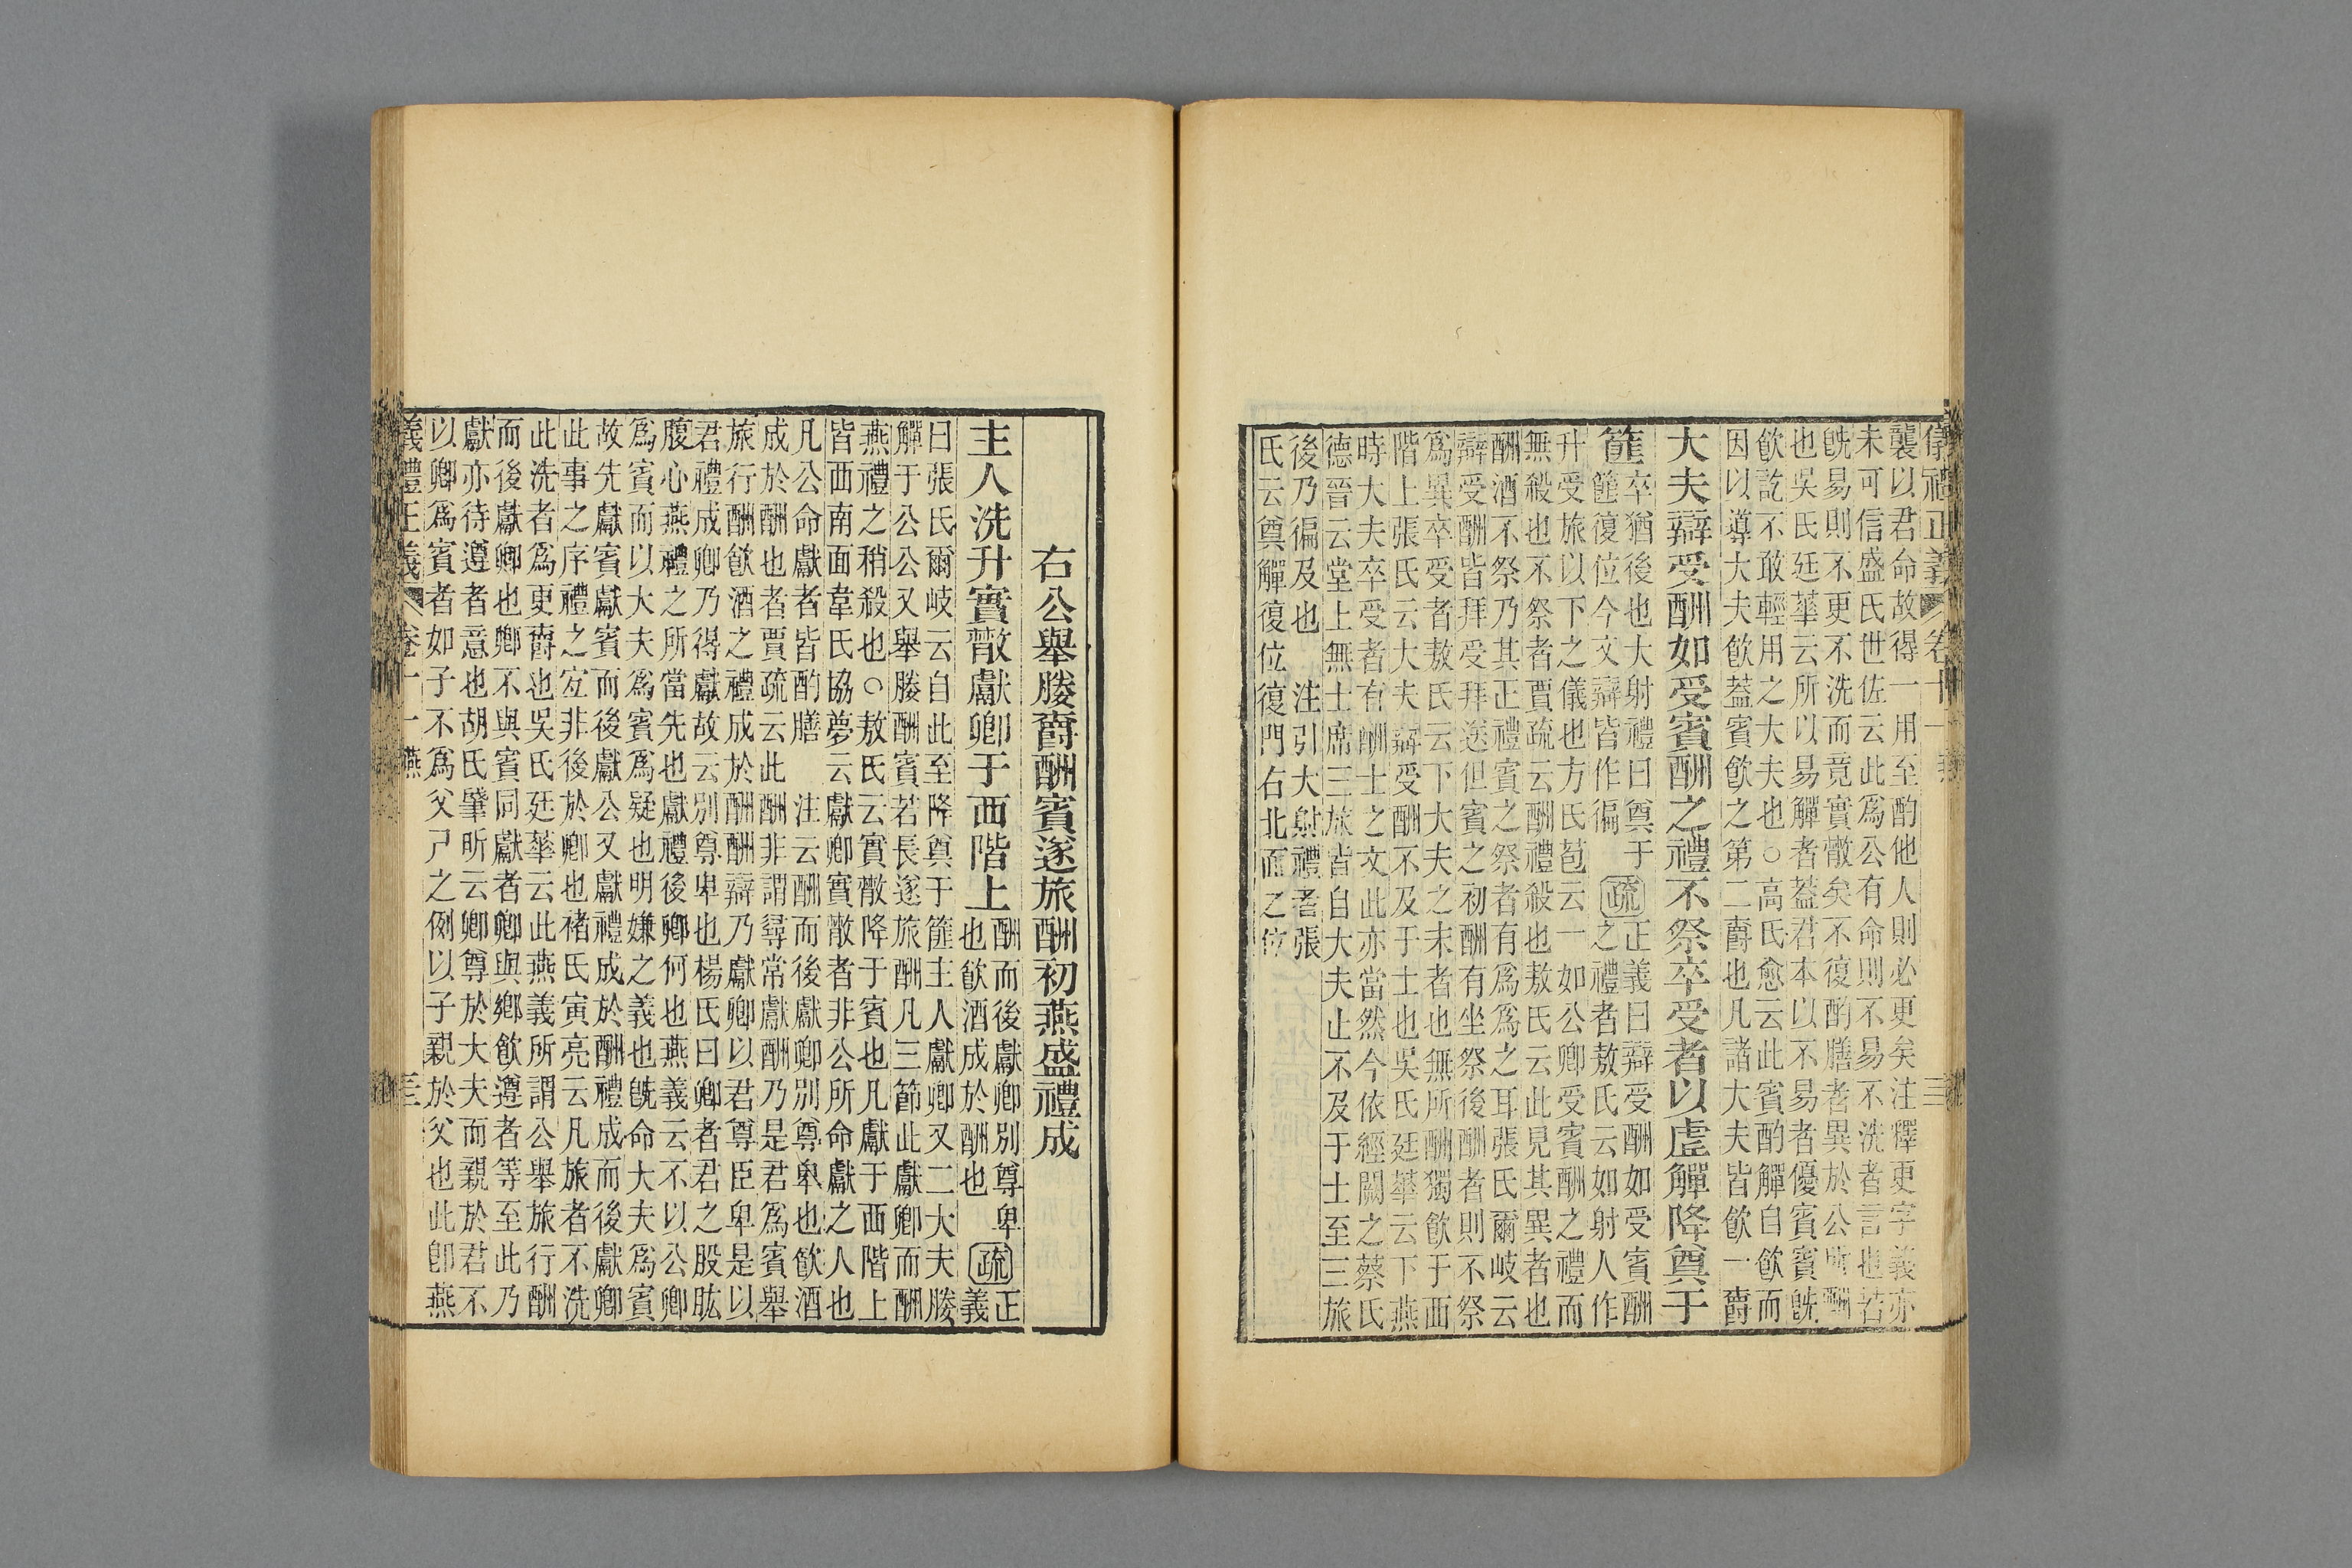 儀禮正義 卷十一 燕 三
襲以君命故得一用至酌他人則必更矣注釋更字義亦
未可信盛氏世佐云此爲公有命則不易不洗者言也若
旣易則不更不洗而竟實散矣不復酌膳者異於公所酬
也吳氏廷華云所以易觶者蓋君本以不易者優賓賓旣
飮訖不敢輕用之大夫也○高氏愈云此賓酌觶自飮而
因以導大夫飮蓋賓飮之第二爵也凡諸大夫皆飮一爵
大夫辯受酬如受賓酬之禮不祭卒受者以虛觶降奠于
篚卒猶後也大射禮曰奠于
篚復位今文辯皆作徧 疏正義曰辯受酬如受賓酬
之禮者敖氏云如射人作
升受旅以下之儀也方氏苞云一如公卿受賓酬之禮而
無殺也不祭者賈疏云酬禮殺也敖氏云此見其異者也
酬酒不祭乃其正禮賓之祭者有爲爲之耳張氏爾岐云
辯受酬皆拜受拜送但賓之初酬有坐祭後酬者則不祭
爲異卒受者敖氏云下大夫之末者也無所酬獨飮于西
階上張氏云大夫辯受酬不及于士也吳氏廷華云下燕
時大夫卒受者有酬士之文此亦當然今依經闕之蔡氏
德晉云堂上無士席三旅皆自大夫止不及于士至三旅
後乃徧及也 注引大射禮者張
氏云奠觶復位復門右北面之位
右公舉媵爵酬賓遂旅酬初燕盛禮成
主人洗升實散獻卿于西階上酬而後獻卿別尊卑
也飮酒成於酬也 疏正
義
曰張氏爾岐云自此至降奠于篚主人獻卿又二大夫媵
觶于公公又舉媵酬賓若長遂旅酬凡三節此獻卿而酬
燕禮之稍殺也○敖氏云實散降于賓也凡獻于西階上
皆西南面韋氏協夢云獻卿實散者非公所命獻之人也
凡公命獻者皆酌膳 注云酬而後獻卿別尊卑也飮酒
成於酬也者賈疏云此酬非謂尋常獻酬乃是君爲賓舉
旅行酬飮酒之禮成於酬酬辯乃獻卿以君尊臣卑是以
君禮成卿乃得獻故云別尊卑也楊氏曰卿者君之股肱
腹心燕禮之所當先也獻禮後卿何也燕義云不以公卿
爲賓而以大夫爲賓爲疑也明嫌之義也旣命大夫爲賓
故先獻賓獻賓而後獻公又獻禮成於酬禮成而後獻卿
此事之序禮之宐非後於卿也褚氏寅亮云凡旅者不洗
此洗者爲更爵也吳氏廷華云此燕義所謂公舉旅行酬
而後獻卿也卿不與賓同獻者卿與鄉飮遵者等至此乃
獻亦待遵者意也胡氏肇昕云卿尊於大夫而親於君不
以卿爲賓者如子不爲父尸之例以子親於父也此卽燕
義禮正義 卷十一 燕 三